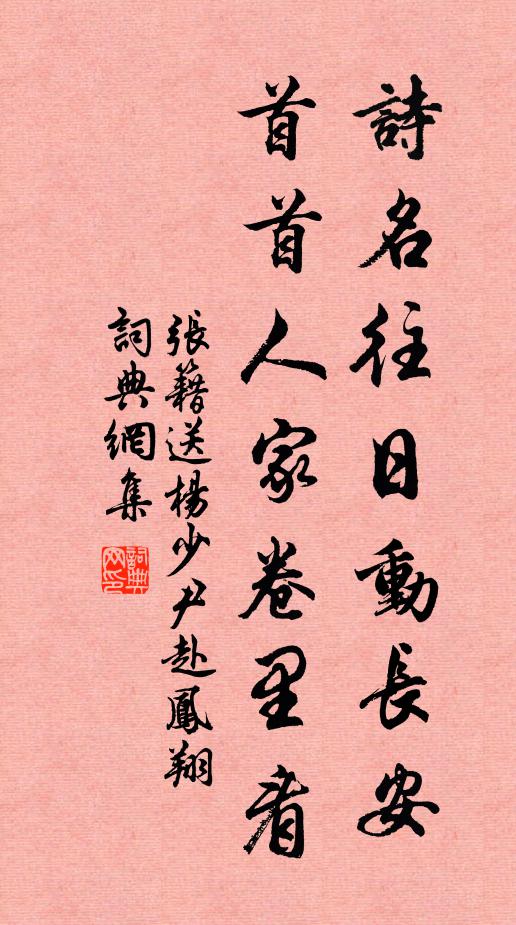 詩名往日動長安
首首人家卷里看
張籍送楊少尹赴鳳翔
詞典網集
詞典网印